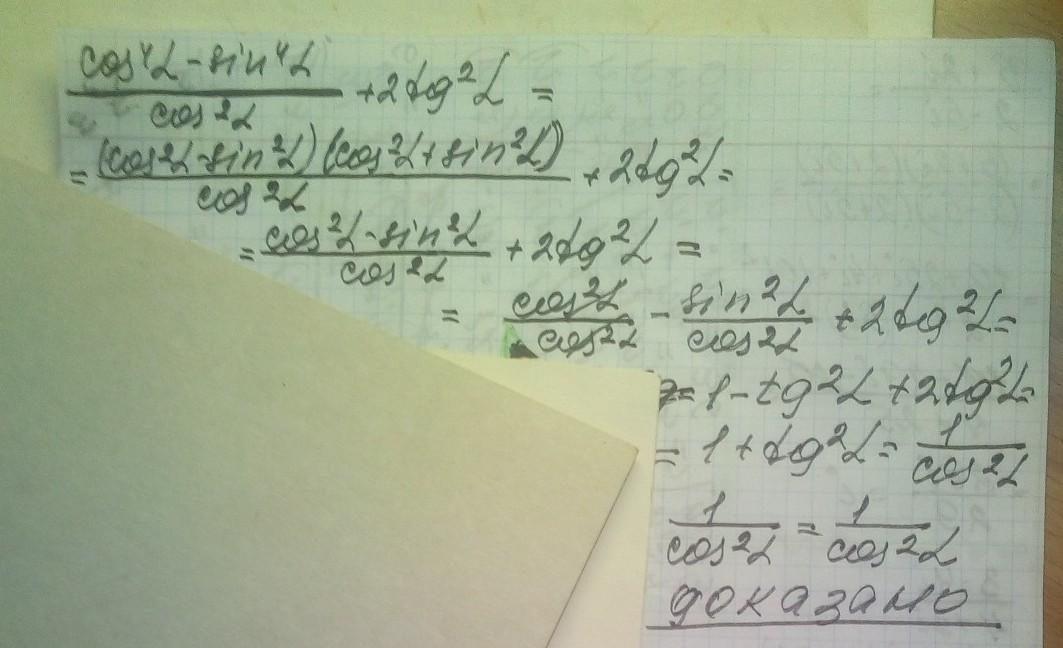 (cos⁴α - sin⁴α)/cos²α + 2tg²α =
= (cos²α - sin²α)(cos²α + sin²α)/cos²α + 2tg²α =
= (cos²α - sin²α)/cos²α + 2tg²α =
= cos²α/cos²α - sin²α/cos²α + 2tg²α =
= 1 - tg²α + 2tg²α =
= 1 + tg²α = 1/cos²α
1/cos²α = 1/cos²α
доказано